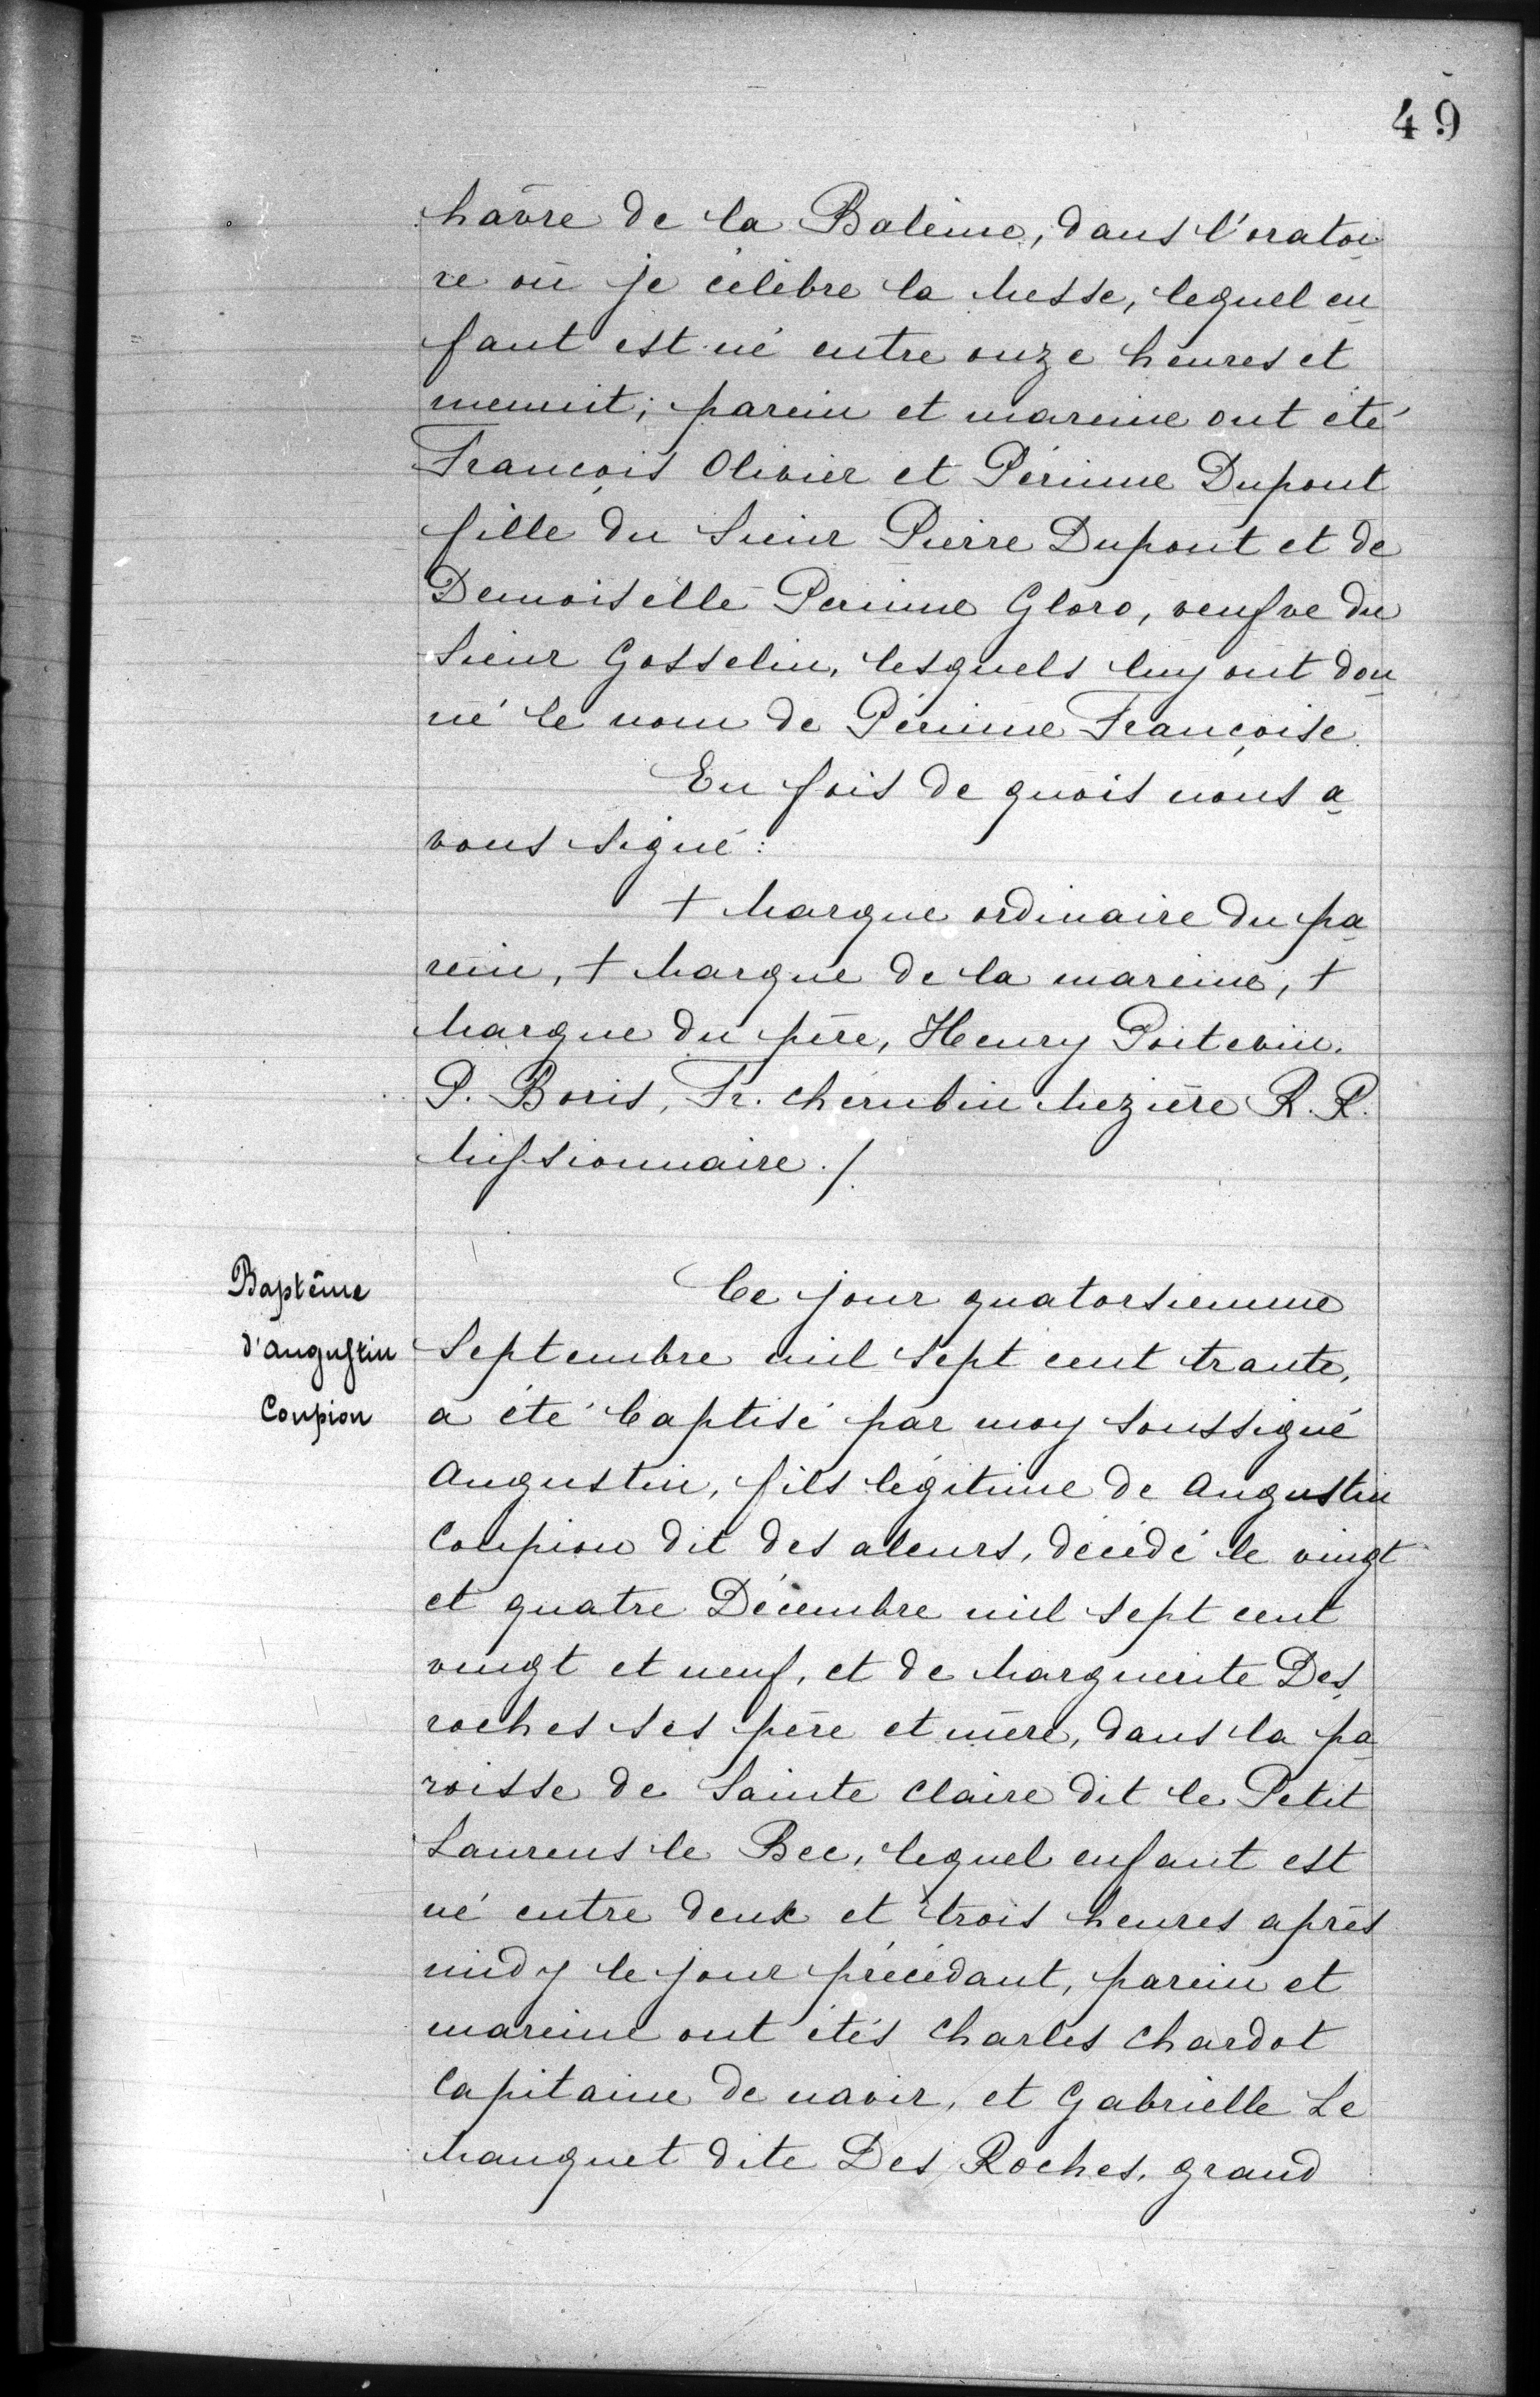 49
hâvre de la Baleine, dans l'oratoi
re où je célèbre la Messe, lequel en
fant est né entre onze heures et
menuit; parein et mareine ont été
François Olivier et Périnne Dupont
fille du Sieur Pierre Dupont et de
Demoiselle Perinne Gloro, veufve du
Sieur Gosselin, lesquels luy ont don
né le nom de Périnne Françoise.
En fois de quois nous a
vons signé:
+ Marque ordinaire du pa
rein, + Marque de la mareine, +
Marque du père, Henry Poitevin.
P. Boris, Fr. cherubin Mezière R. R.
Missionnaire ./.
Baptême
d'Augustin
Coupion
Ce jour quatorsiemme
Septembre mil sept cent trante,
a été baptisé par moy soussigné
Augustin, fils légitime de Augustin
Coupion dit des aleurs, décédé le vingt
et quatre Décembre mil sept cent
vingt et neuf, et de Marguerite Des
roches ses père et mère, dans la pa
roisse de Sainte Claire dit le Petit
Laurens le Bec, lequel enfant est
né entre deux et trois heures après
midy le jour précédant, parein et
mareine ont étés Charles Chardot
Capitaine de navir, et Gabrielle Le
Manquet dite Des Roches, grand